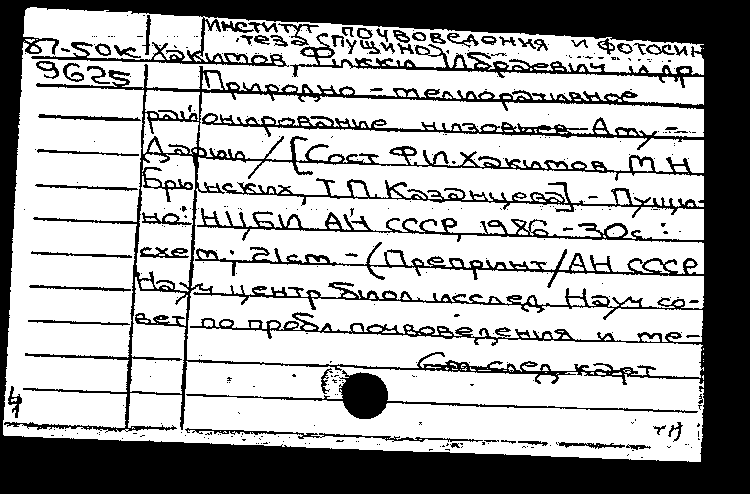 институт почвоведения и фотосин
теза (Пущино).
87-50к Хакимов, Фиккил Ибраевич и др
9625 Природно-мелиоративное
районирование низовьев Аму-
Дарьи / [Сост Ф.И.Хакимов, М.Н
Брынских, Т.П. Казанцева]. - Пущи-
но: НЦБИ АН СССР, 1986.-30с.:
схем.; 21см. - (Препринт/АН СССР
Науч центр биол исслед. Науч со-
вет по пробл. почвоведения и ме-
См след карт
4